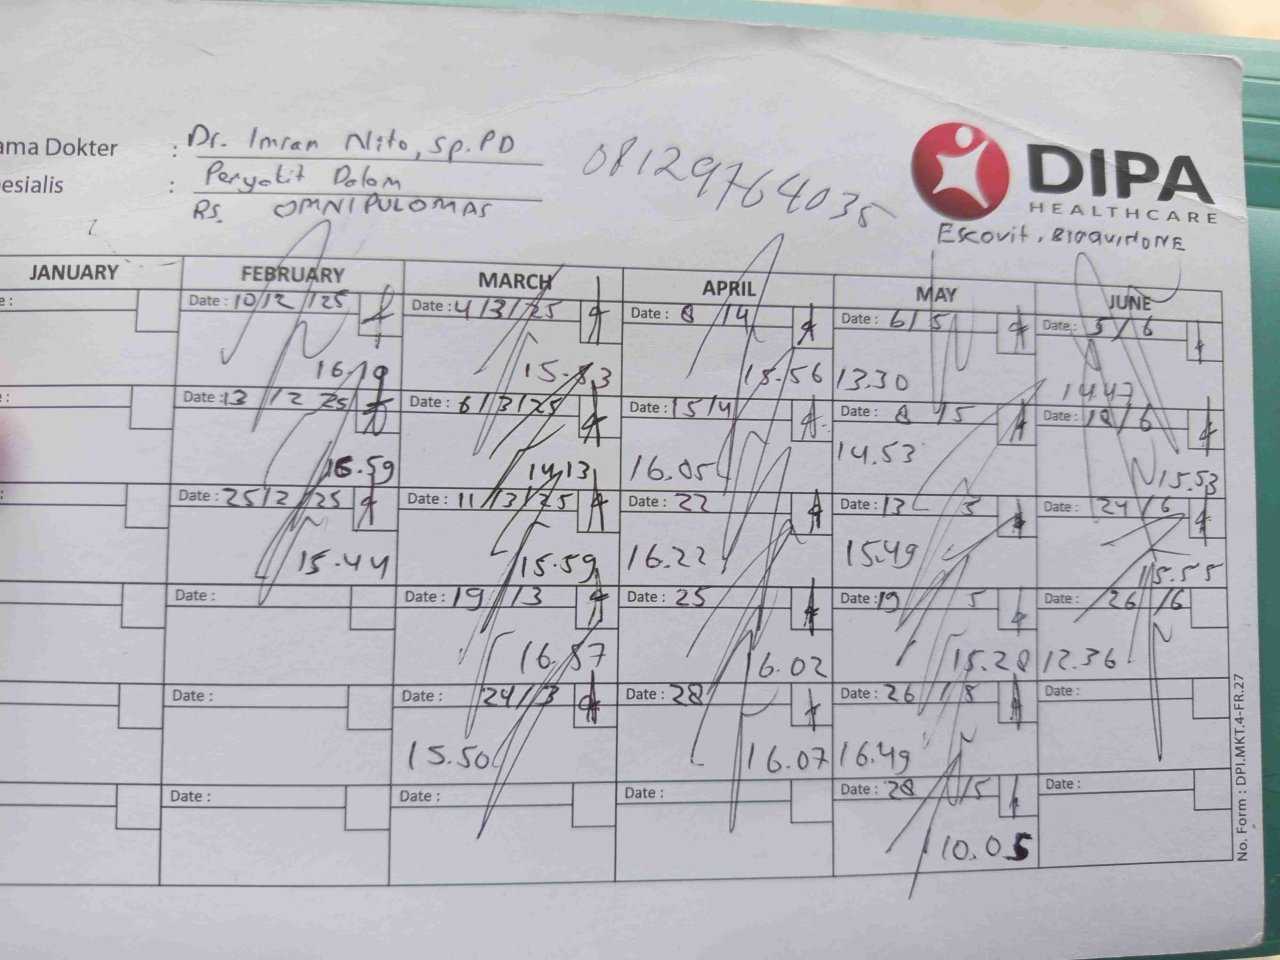 ama Dokter : Dr. Imran Nito, Sp.PD
esialis : Penyakit Dalam
RS. OMNIPULOMAS
08129764035
DIPA
HEALTHCARE
Escovit, BIOQUIDONE
JANUARY FEBRUARY MARCH APRIL MAY JUNE
e: Date : 10/2/25 Date : 4/3/25 Date : 8/4 Date : 6/5 Date : 5/6
16.19 15.53 15.56 13.30 14.47
: Date : 13/2 25 Date : 6/3/25 Date : 15/4 Date : 8/5 Date : 18/6
16.59 14.13 16.05 14.53 15.53
: Date : 25/2/25 Date : 11/3/25 Date : 22 Date : 13 5 Date : 24/6
15.44 15.59 16.22 15.49 15.55
Date : Date : 19/3 Date : 25 Date : 19 5 Date : 26/6
16.57 16.02 15.28 12.36
Date : Date : 24/3 Date : 28 Date : 26/5 Date :
15.50 16.07 16.49
Date : Date : Date : Date : 28/5 Date :
10.05
No. Form : DPI.MKT.4-FR.27